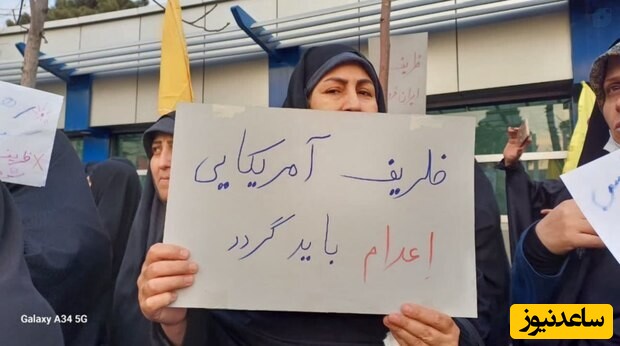 ظریف آمریکایی
إعدام باید گردد
ظریف
ایران
Galaxy A34 5G
ساعدنیوز